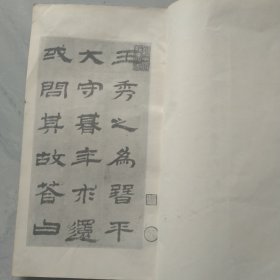 王秀之為晉平
大守暮年求還
或問其故答曰